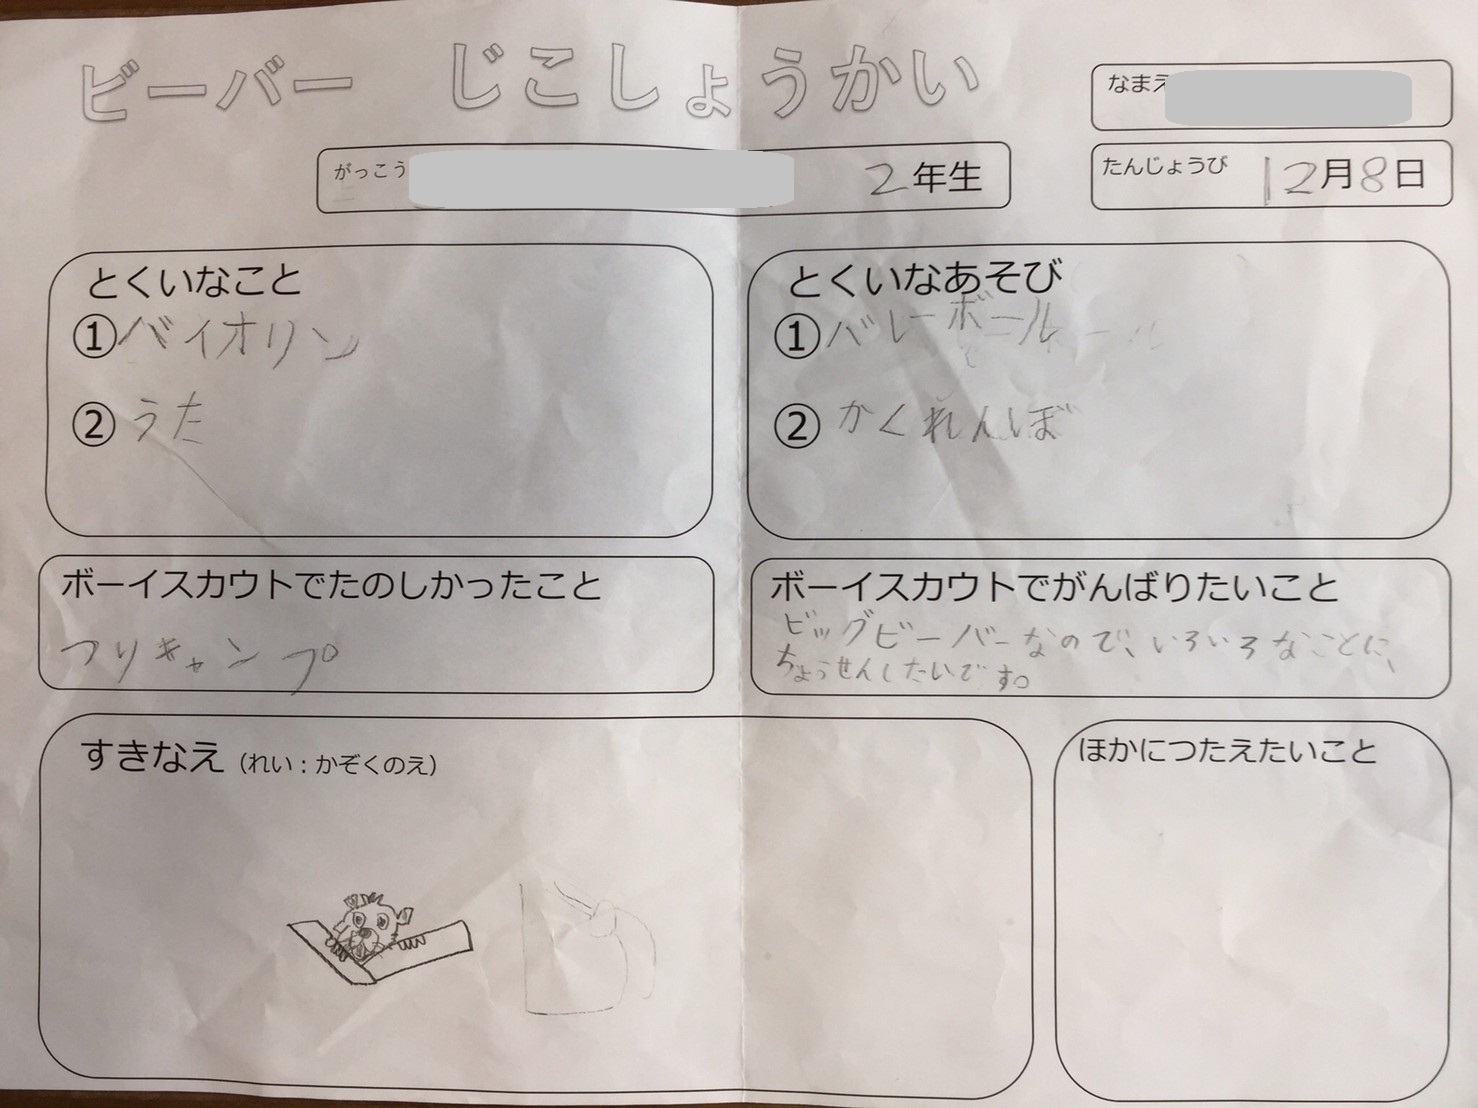 ビーバー じこしょうかい
なまえ
がっこう 2年生
たんじょうび 12月8日
とくいなこと
①バイオリン
②うた
とくいなあそび
①バレーボール
②かくれんぼ
ボーイスカウトでたのしかったこと
つりキャンプ
ボーイスカウトでがんばりたいこと
ビッグビーバーなので、いろいろなことに、
ちょうせんしたいです。
すきなえ(れい：かぞくのえ)
ほかにつたえたいこと